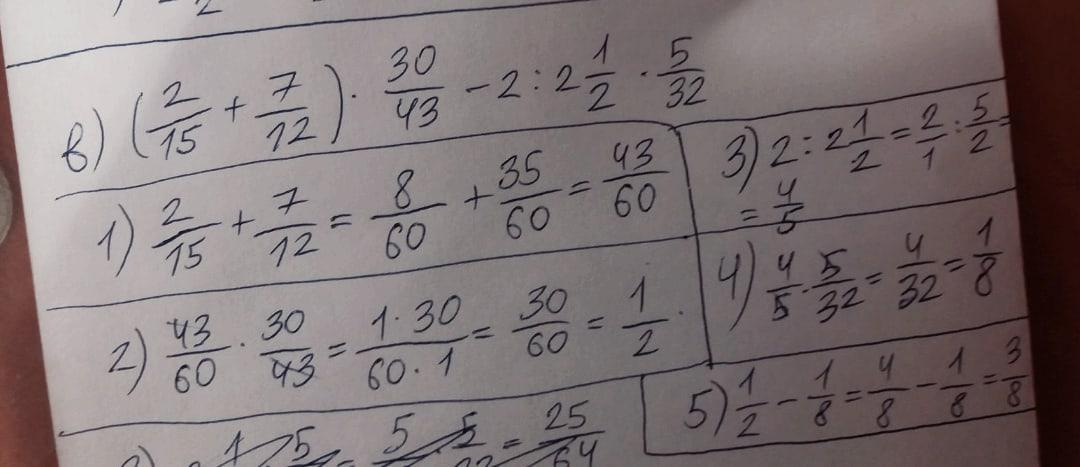 в) (2/15 + 7/12) · 30/43 - 2 : 2 1/2 · 5/32
1) 2/15 + 7/12 = 8/60 + 35/60 = 43/60
2) 43/60 · 30/43 = 1·30/60·1 = 30/60 = 1/2.
3) 2 : 2 1/2 = 2/1 : 5/2 =
= 4/5
4) 4/5 · 5/32 = 4/32 = 1/8
5) 1/2 - 1/8 = 4/8 - 1/8 = 3/8
= 25/64